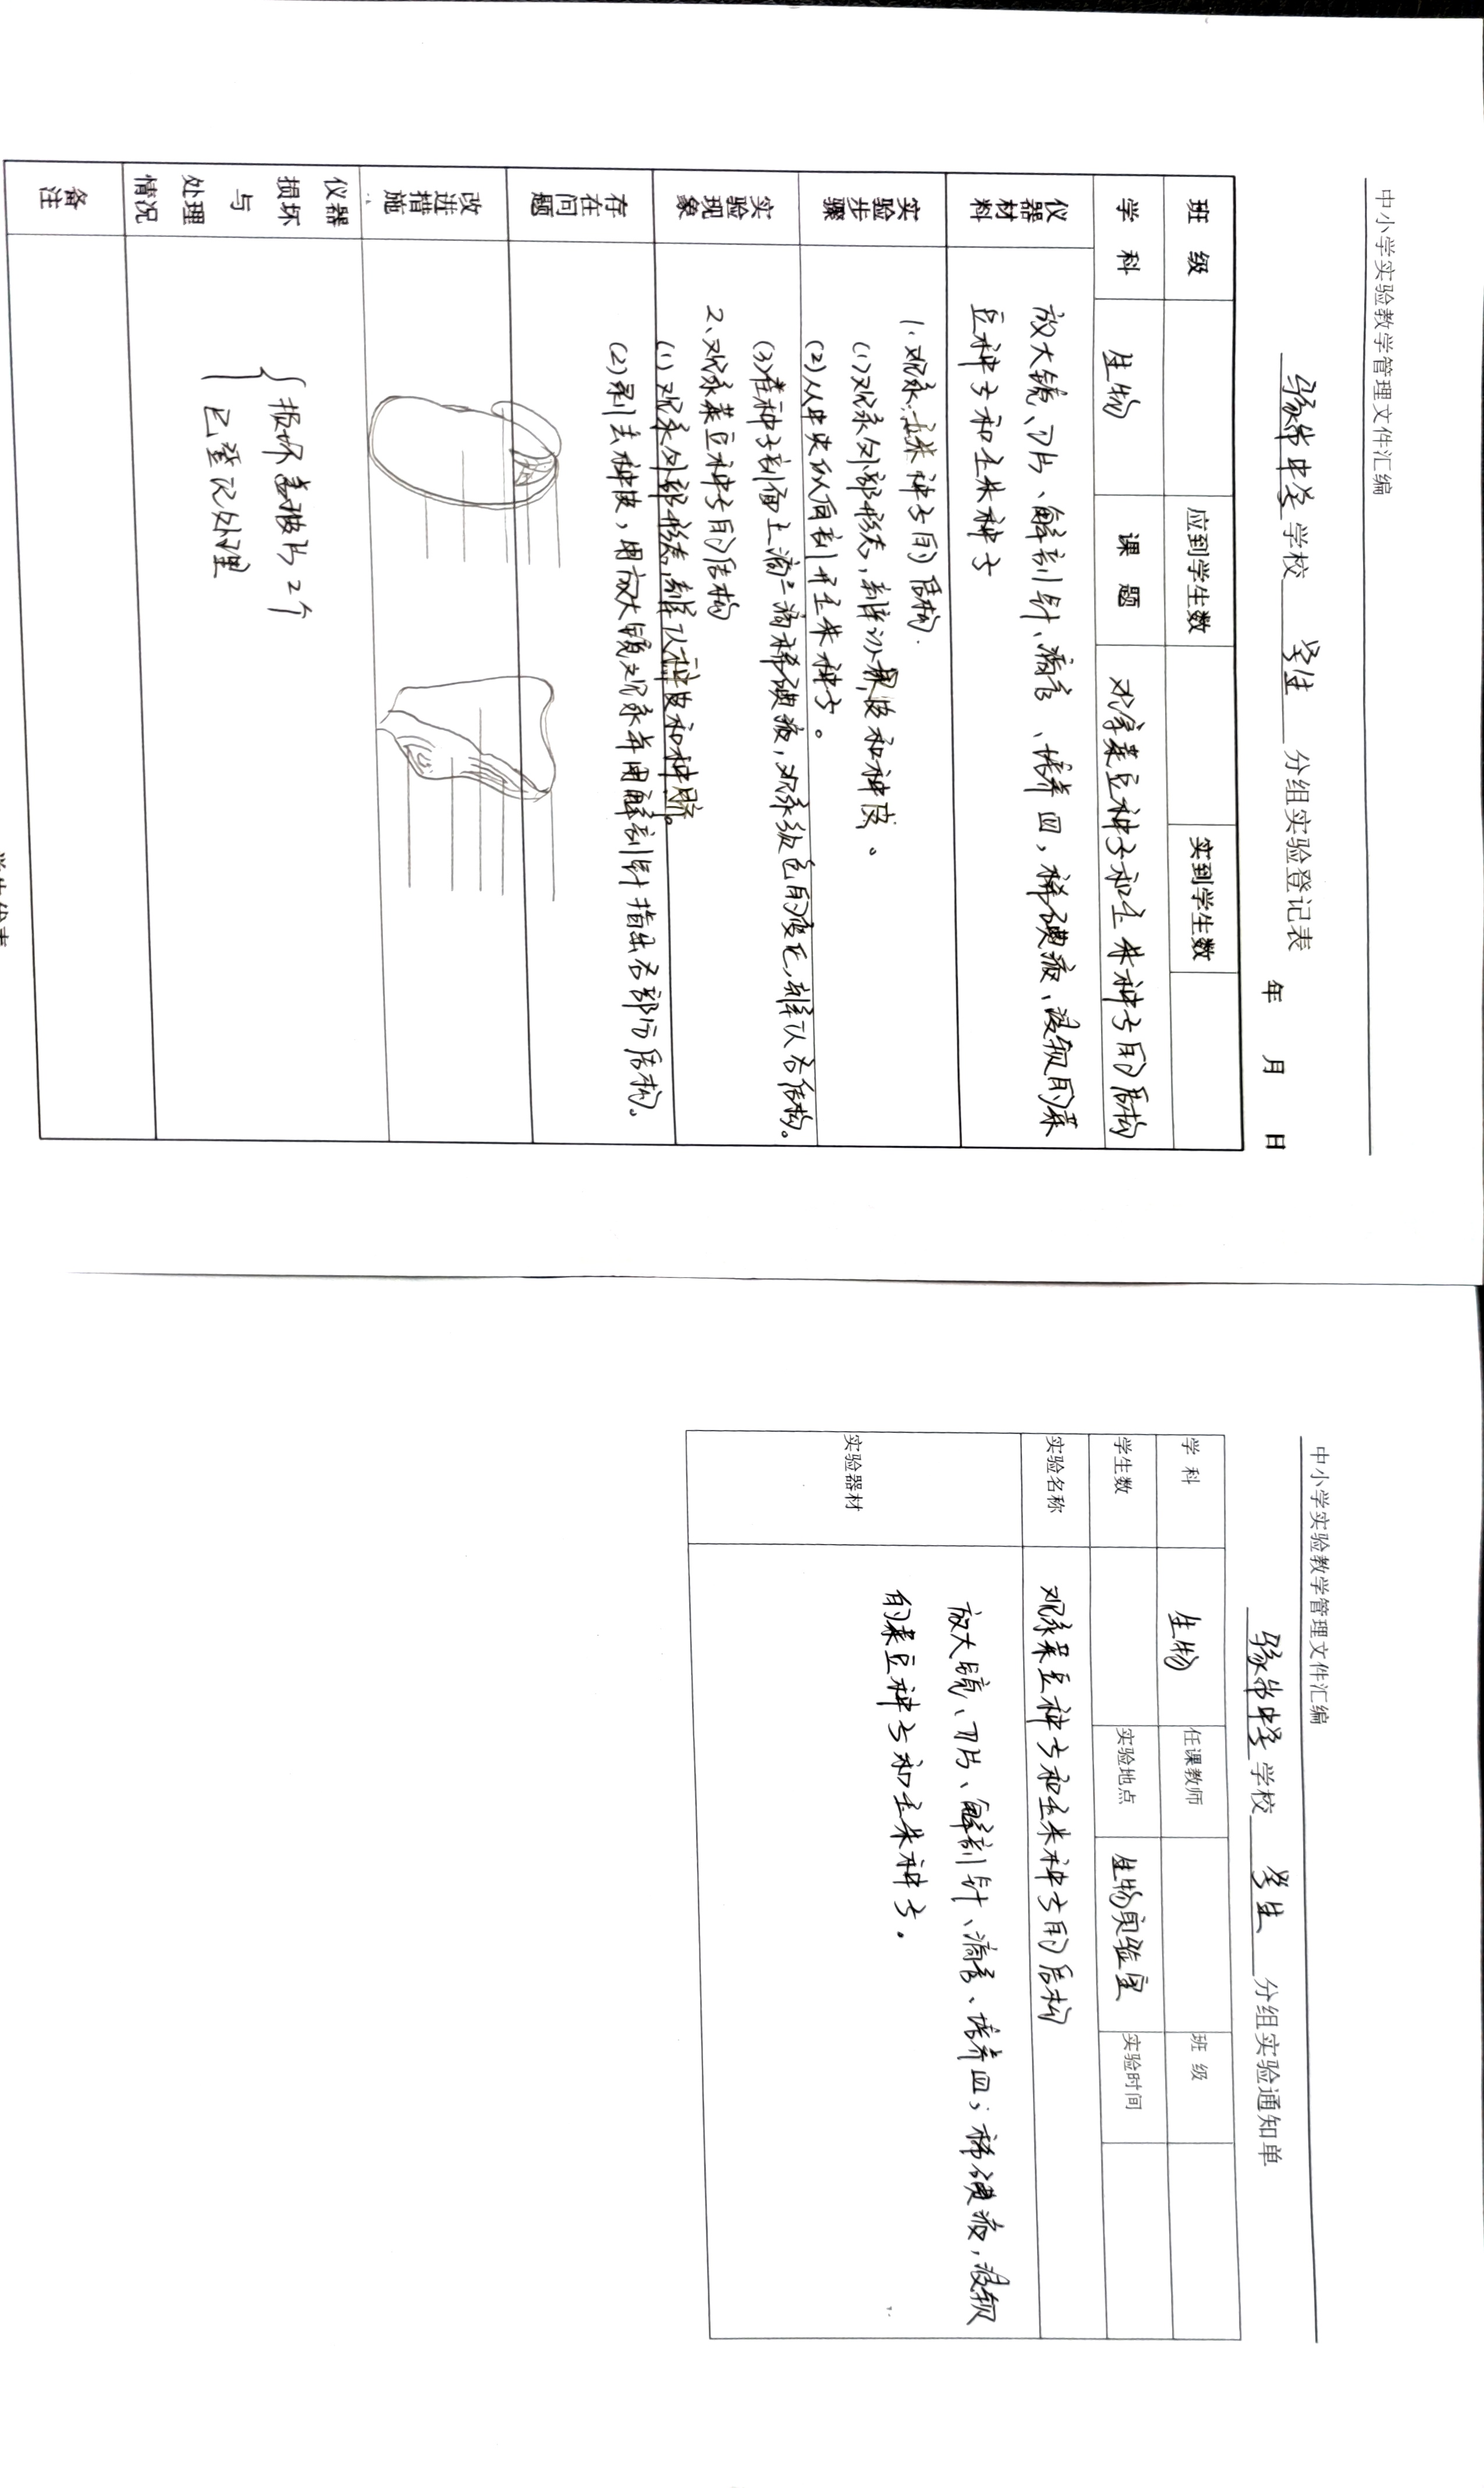 中小学实验教学管理文件汇编
中学 学校 学生 分组实验登记表
年 月 日
班 级 应到学生数 实到学生数
学 科 生物 课 题 观察菜豆种子和玉米种子的结构
仪器材料
放大镜、刀片、解剖针、滴管、培养皿,稀碘液、浸软的菜
豆种子和玉米种子
实验步骤
1、观察玉米种子的结构.
(1)观察外部形态,辨认果皮和种皮。
(2)从中央纵向剖开玉米种子。
实验现象
(3)在种子剖面上滴一滴稀碘液,观察颜色的变化,辨认各结构。
2、观察菜豆种子的结构
(1)观察外部形态,辨认种皮和种脐。
存在问题
(2)剥去种皮,用放大镜观察并用解剖针指出各部分结构。
改进措施
仪器损坏与处理情况
损坏盖玻片2个
已登记处理
备注
学生代表
中小学实验教学管理文件汇编
中学 学校 学生 分组实验通知单
学 科 生物 任课教师 班 级
学生数 实验地点 生物实验室 实验时间
实验名称 观察菜豆种子和玉米种子的结构
实验器材
放大镜、刀片、解剖针、滴管、培养皿;稀碘液,浸软
的菜豆种子和玉米种子.